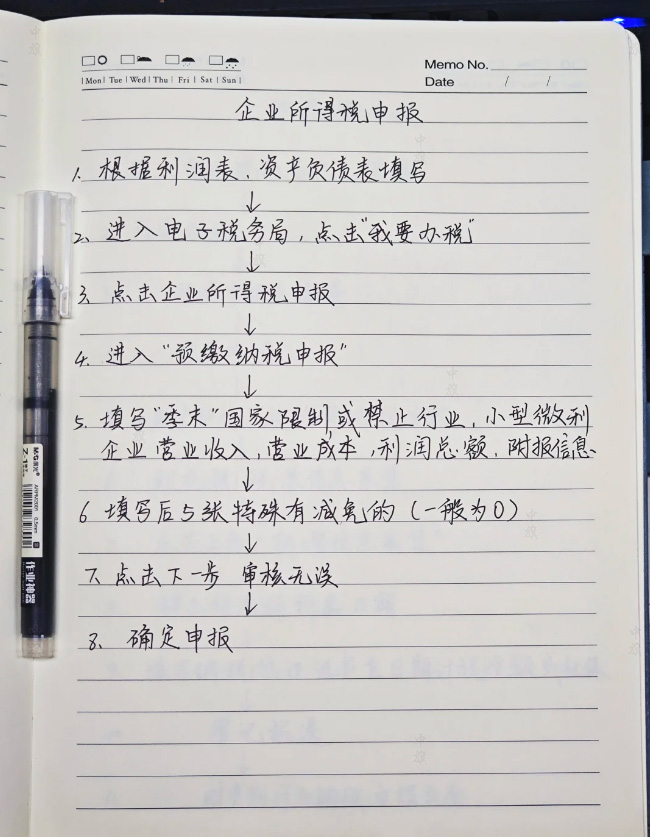 Memo No.
Mon Tue Wed Thu Fri Sat Sun
Date / /
企业所得税申报
1. 根据利润表、资产负债表填写
↓
2. 进入电子税务局，点击“我要办税”
↓
3. 点击企业所得税申报
↓
4. 进入“预缴纳税申报”
↓
5. 填写“季末”国家限制或禁止行业，小型微利
企业营业收入，营业成本，利润总额，附报信息
↓
6 填写后5张特殊有减免的（一般为0）
↓
7. 点击下一步 审核无误
↓
8. 确定申报
M&G晨光
0.5mm
作业神器